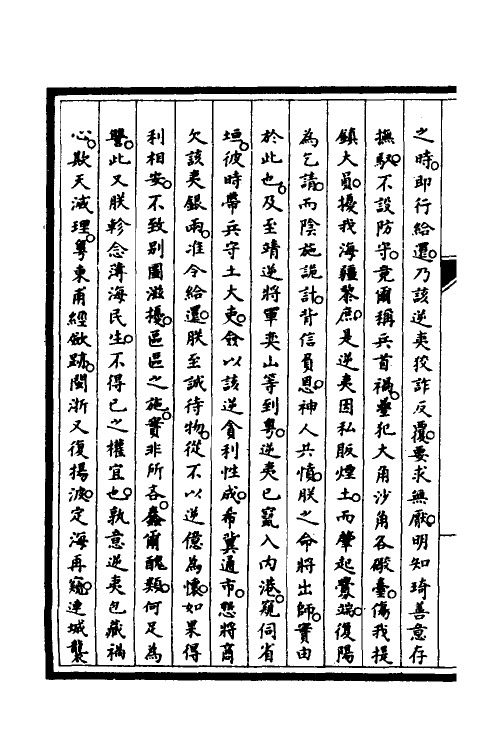 之時。即行給還。乃該逆夷狡詐反覆。要求無厭。明知琦善意存
撫馭。不設防守。竟爾稱兵首禍。疊犯大角沙角各礮臺。傷我提
鎮大員。擾我海疆黎庶。是逆夷因私販煙土。而肇起釁端。復陽
為乞請。而陰施詭計。背信負恩。神人共憤。朕之命將出師。實由
於此也。及至靖逆將軍奕山等到粵。逆夷已竄入內港。窺伺省
垣。彼時帶兵守土大吏。僉以該逆貪利性成。希冀通市。懇將商
欠該夷銀兩。准令給還。朕至誠待物。從不以逆億為懷。如果得
利相安。不致別圖滋擾。區區之施。實非所吝。蠢爾醜類。何足為
讐。此又朕軫念薄海民生。不得已之權宜也。孰意逆夷包藏禍
心。欺天滅理。粵東甫經斂跡。閩浙又復揚波。定海再窺。連城襲